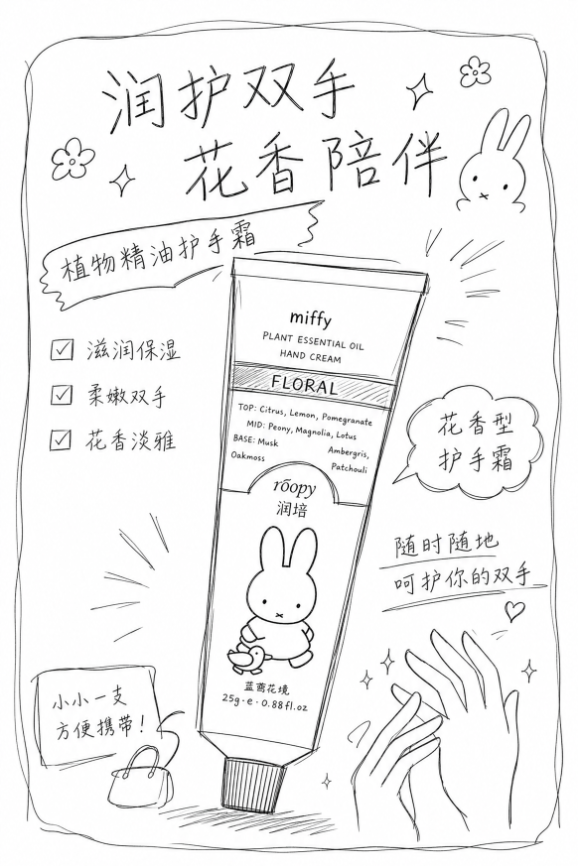 润护双手
花香陪伴
植物精油护手霜
滋润保湿
柔嫩双手
花香淡雅
miffy
PLANT ESSENTIAL OIL
HAND CREAM
FLORAL
TOP: Citrus, Lemon, Pomegranate
MID: Peony, Magnolia, Lotus
BASE: Musk Ambergris,
Oakmoss Patchouli
rōopy
润培
蓝茵花境
25g·e·0.88fl.oz
花香型
护手霜
随时随地
呵护你的双手
小小一支
方便携带!